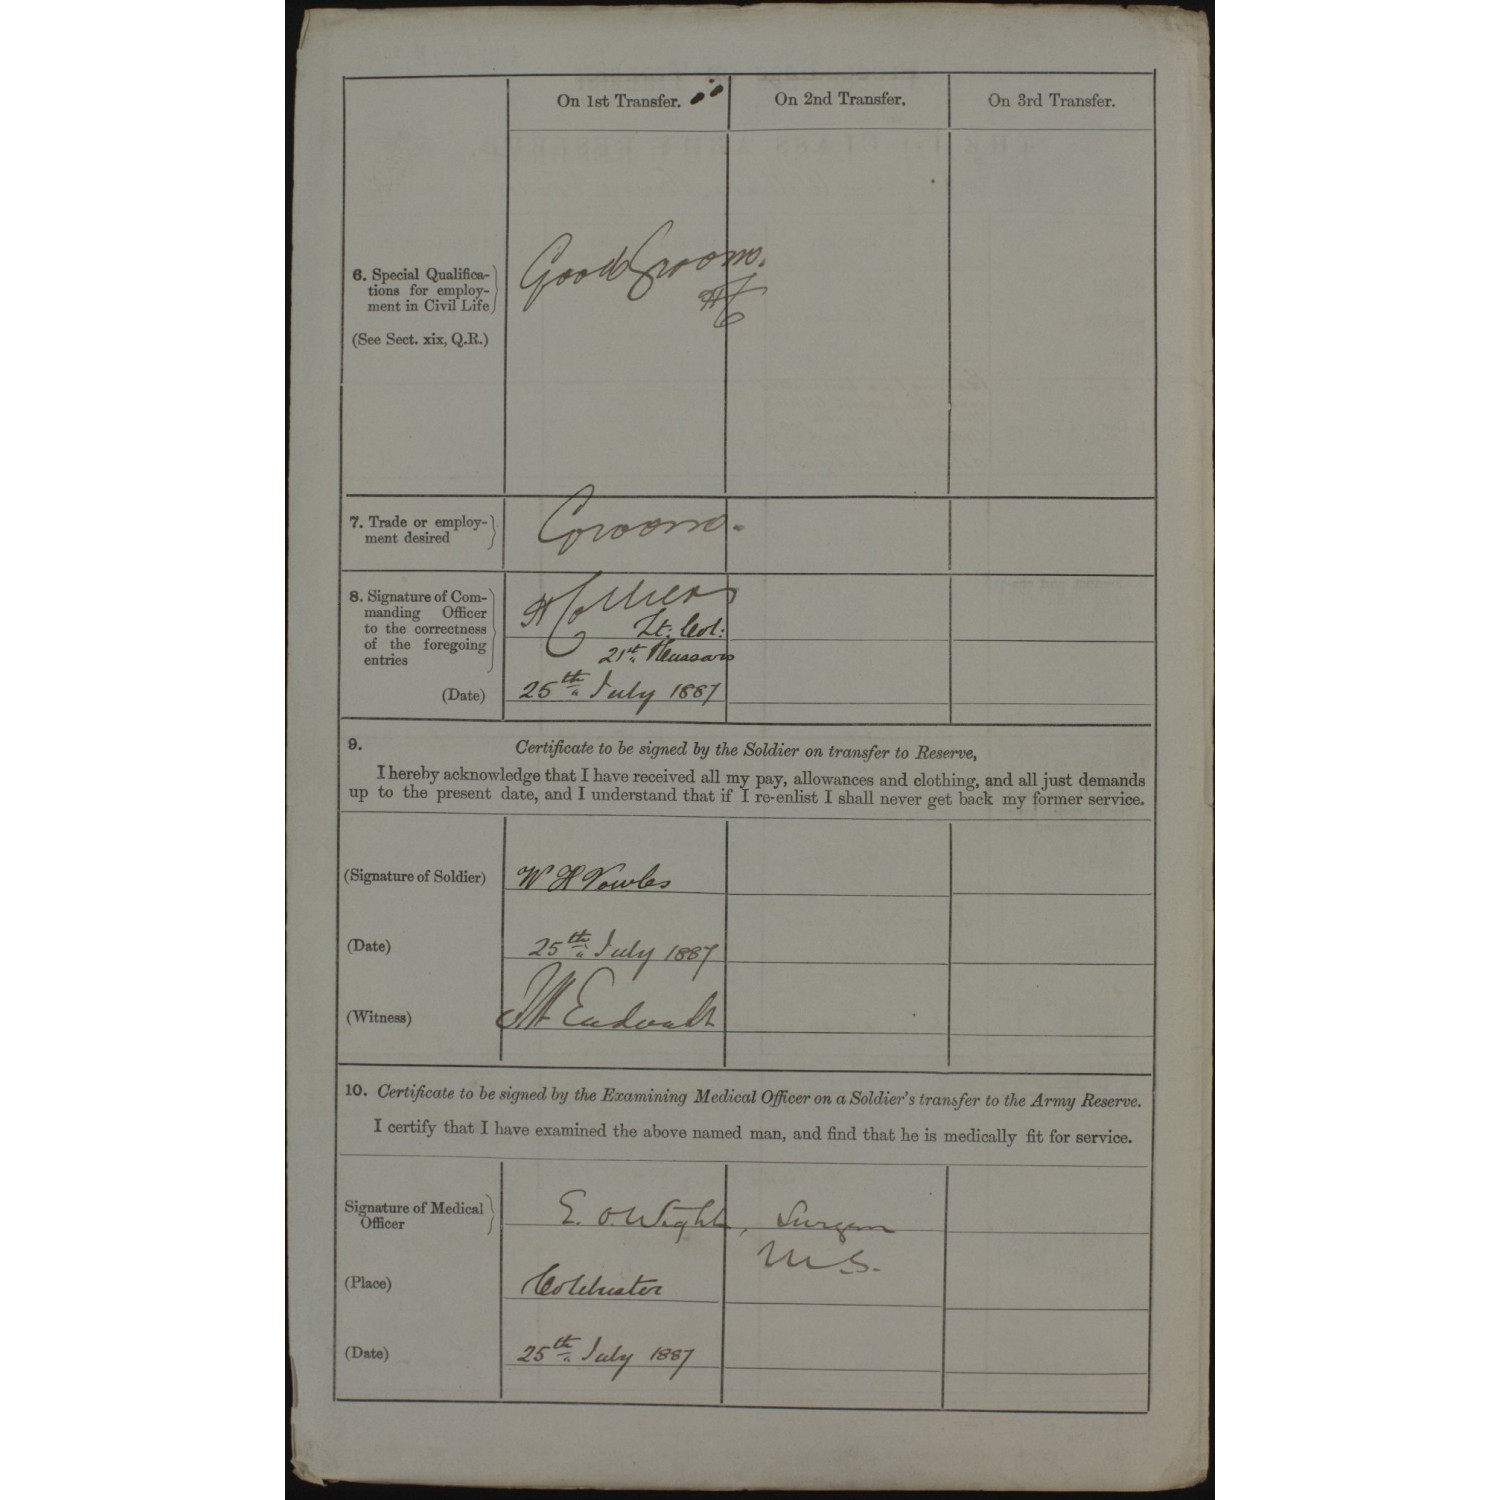 On 1st Transfer.
On 2nd Transfer.
On 3rd Transfer.
6. Special Qualifica-
tions for employ-
ment in Civil Life
(See Sect. xix, Q.R.)
Good Groom.
7. Trade or employ-
ment desired
Groom.
8. Signature of Com-
manding Officer
to the correctness
of the foregoing
entries
Lt: Col:
21st Hussars
(Date)
25th July 1887
9. Certificate to be signed by the Soldier on transfer to Reserve,
I hereby acknowledge that I have received all my pay, allowances and clothing, and all just demands
up to the present date, and I understand that if I re-enlist I shall never get back my former service.
(Signature of Soldier) W H Vowles
(Date) 25th July 1887
(Witness)
10. Certificate to be signed by the Examining Medical Officer on a Soldier's transfer to the Army Reserve.
I certify that I have examined the above named man, and find that he is medically fit for service.
Signature of Medical
Officer
E. O. Wight, Surgeon
M.S.
(Place) Colchester
(Date) 25th July 1887